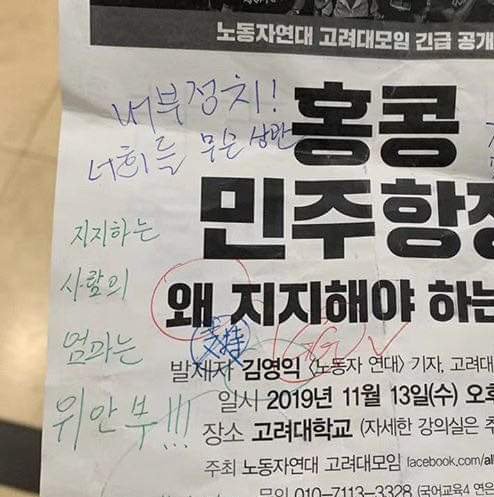 노동자연대 고려대모임 긴급 공개
내부정치!
너희들 무슨 상관
홍콩
민주항쟁
지지하는
사람의
엄마는
위안부!!!
왜 지지해야 하는
支持
발제자 김영익 〈노동자 연대〉 기자, 고려대
일시 2019년 11월 13일(수) 오후
장소 고려대학교 (자세한 강의실은 추
주최 노동자연대 고려대모임 facebook.com/al
문의 010-7113-3328 (국어교육4 연은